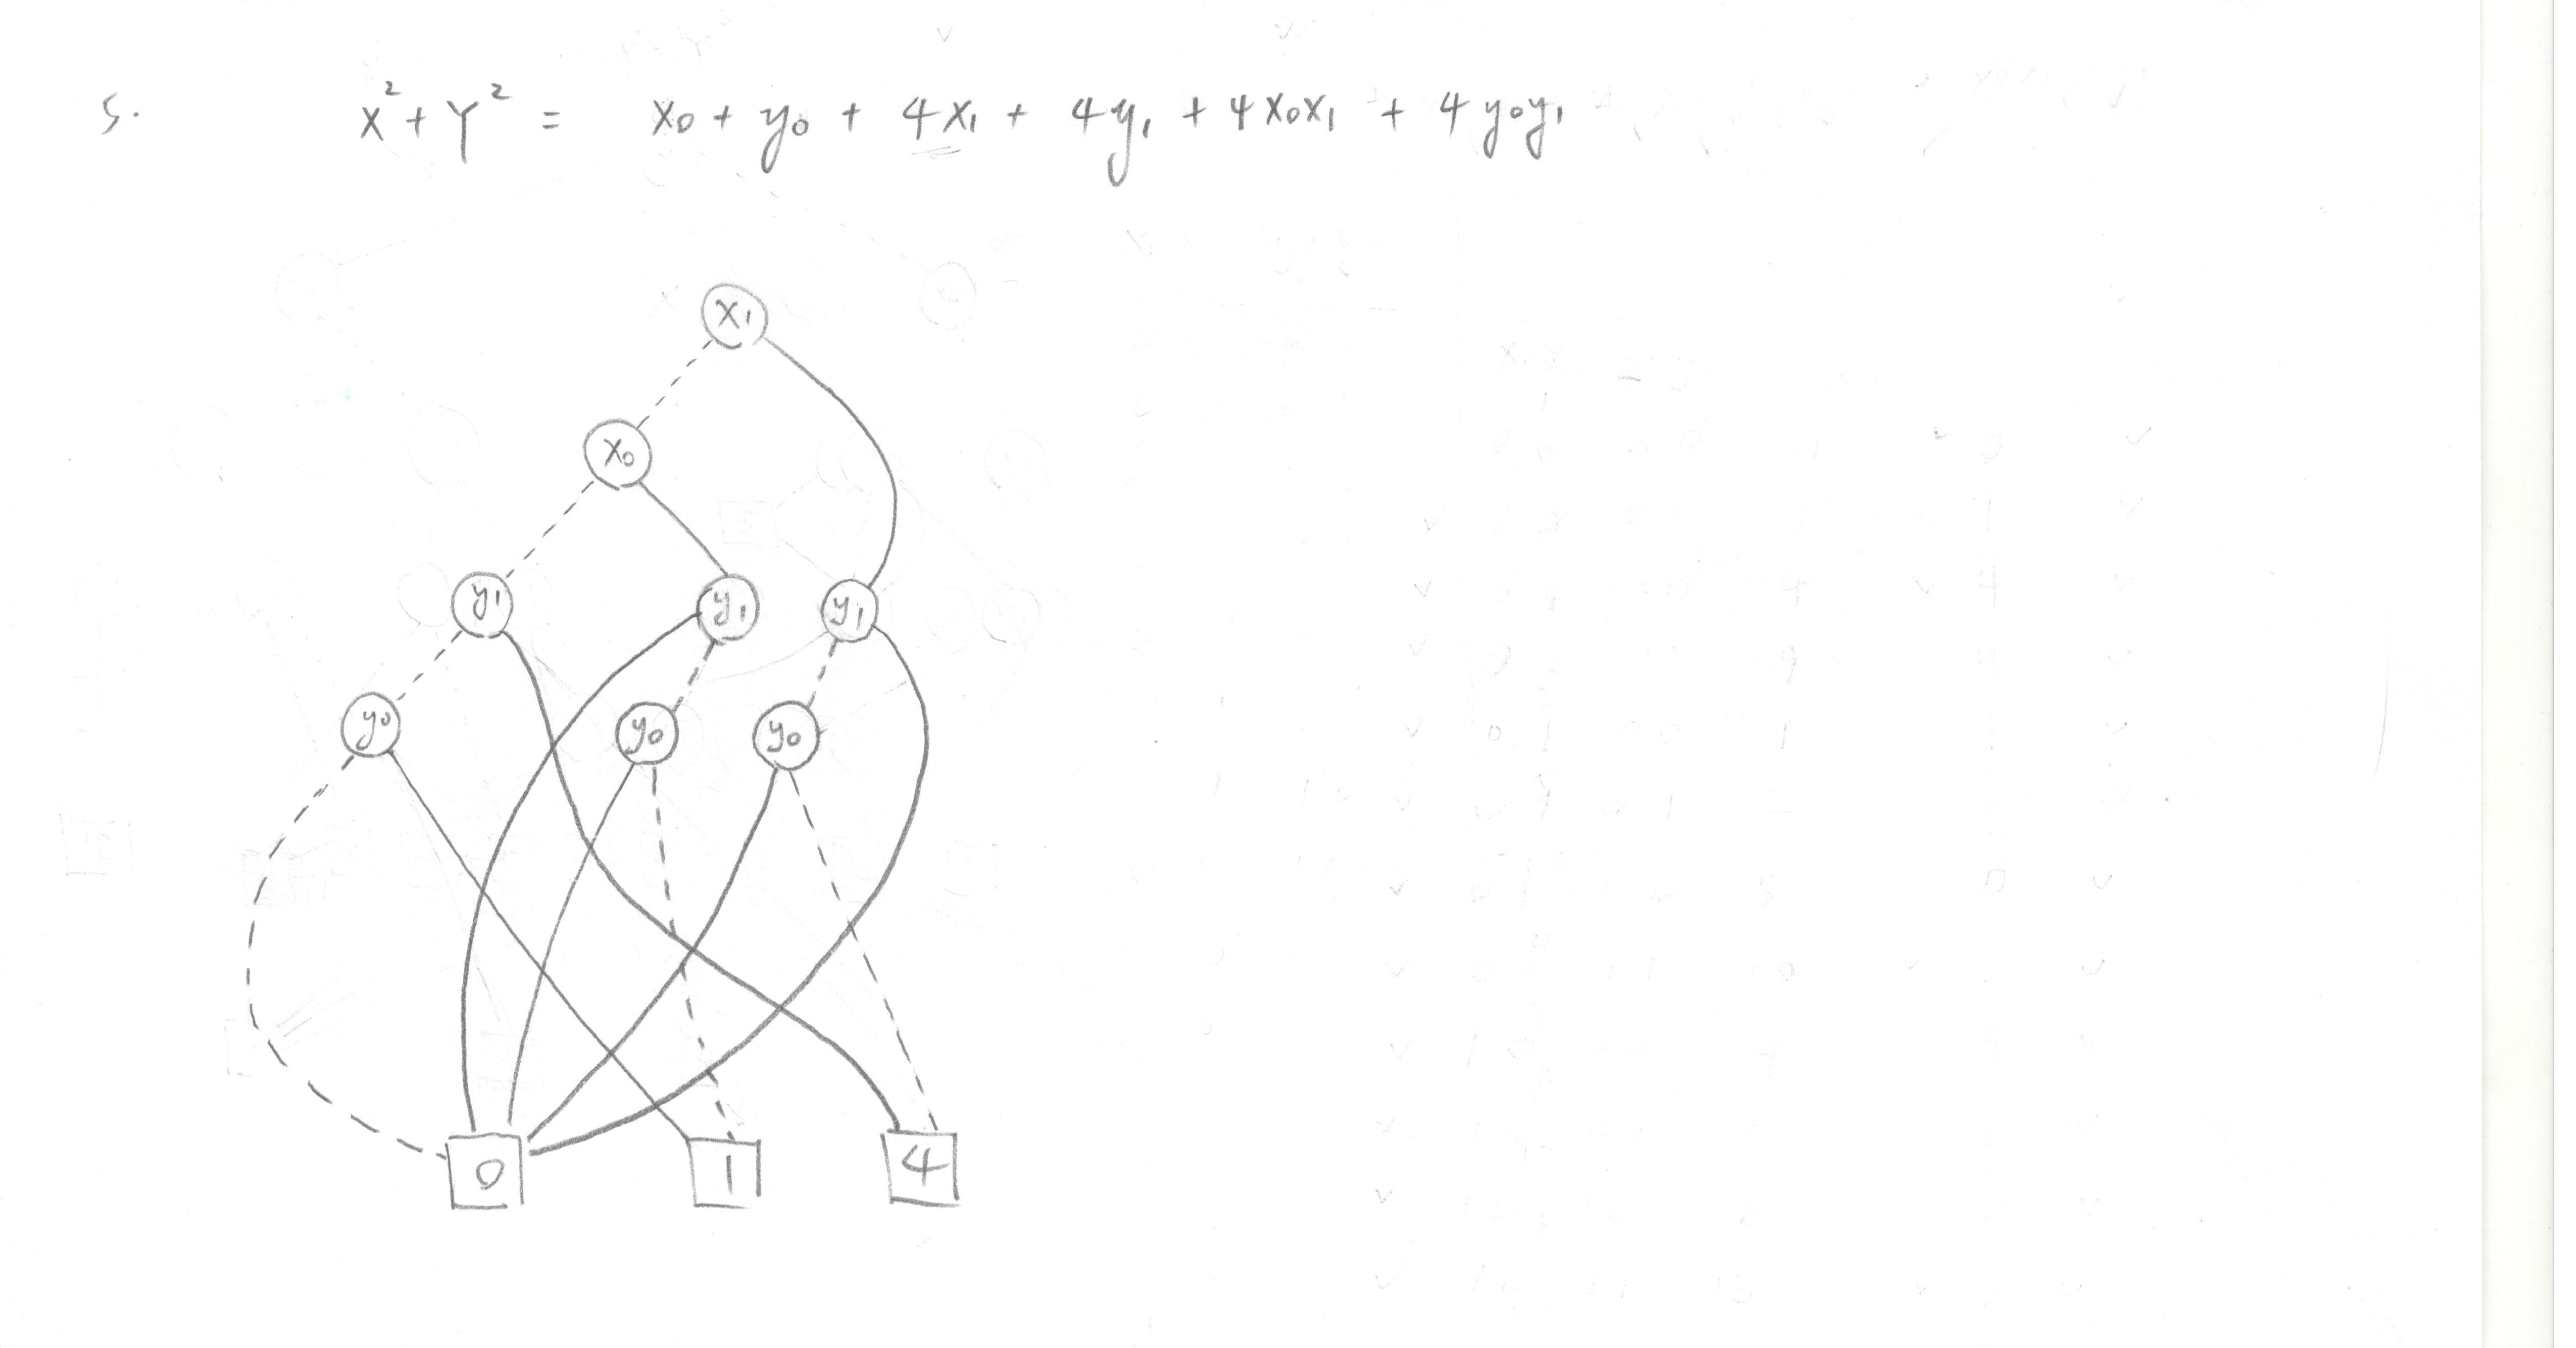 5. x² + Y² = x₀ + y₀ + 4x₁ + 4y₁ + 4x₀x₁ + 4y₀y₁
x₁
x₀
y₁ y₁ y₁
y₀ y₀ y₀
0 1 4